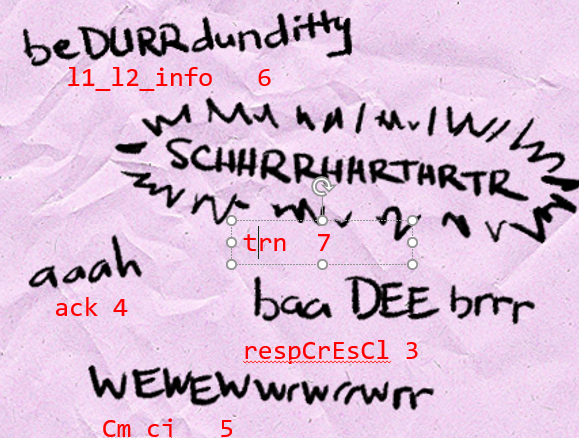 beDURRdunditty
l1_l2_info 6
SCHHRRHHRTHRTR
trn 7
aaah
ack 4
baa DEE brrr
respCrEsCl 3
WEWEWwrwrrwrr
Cm cj 5